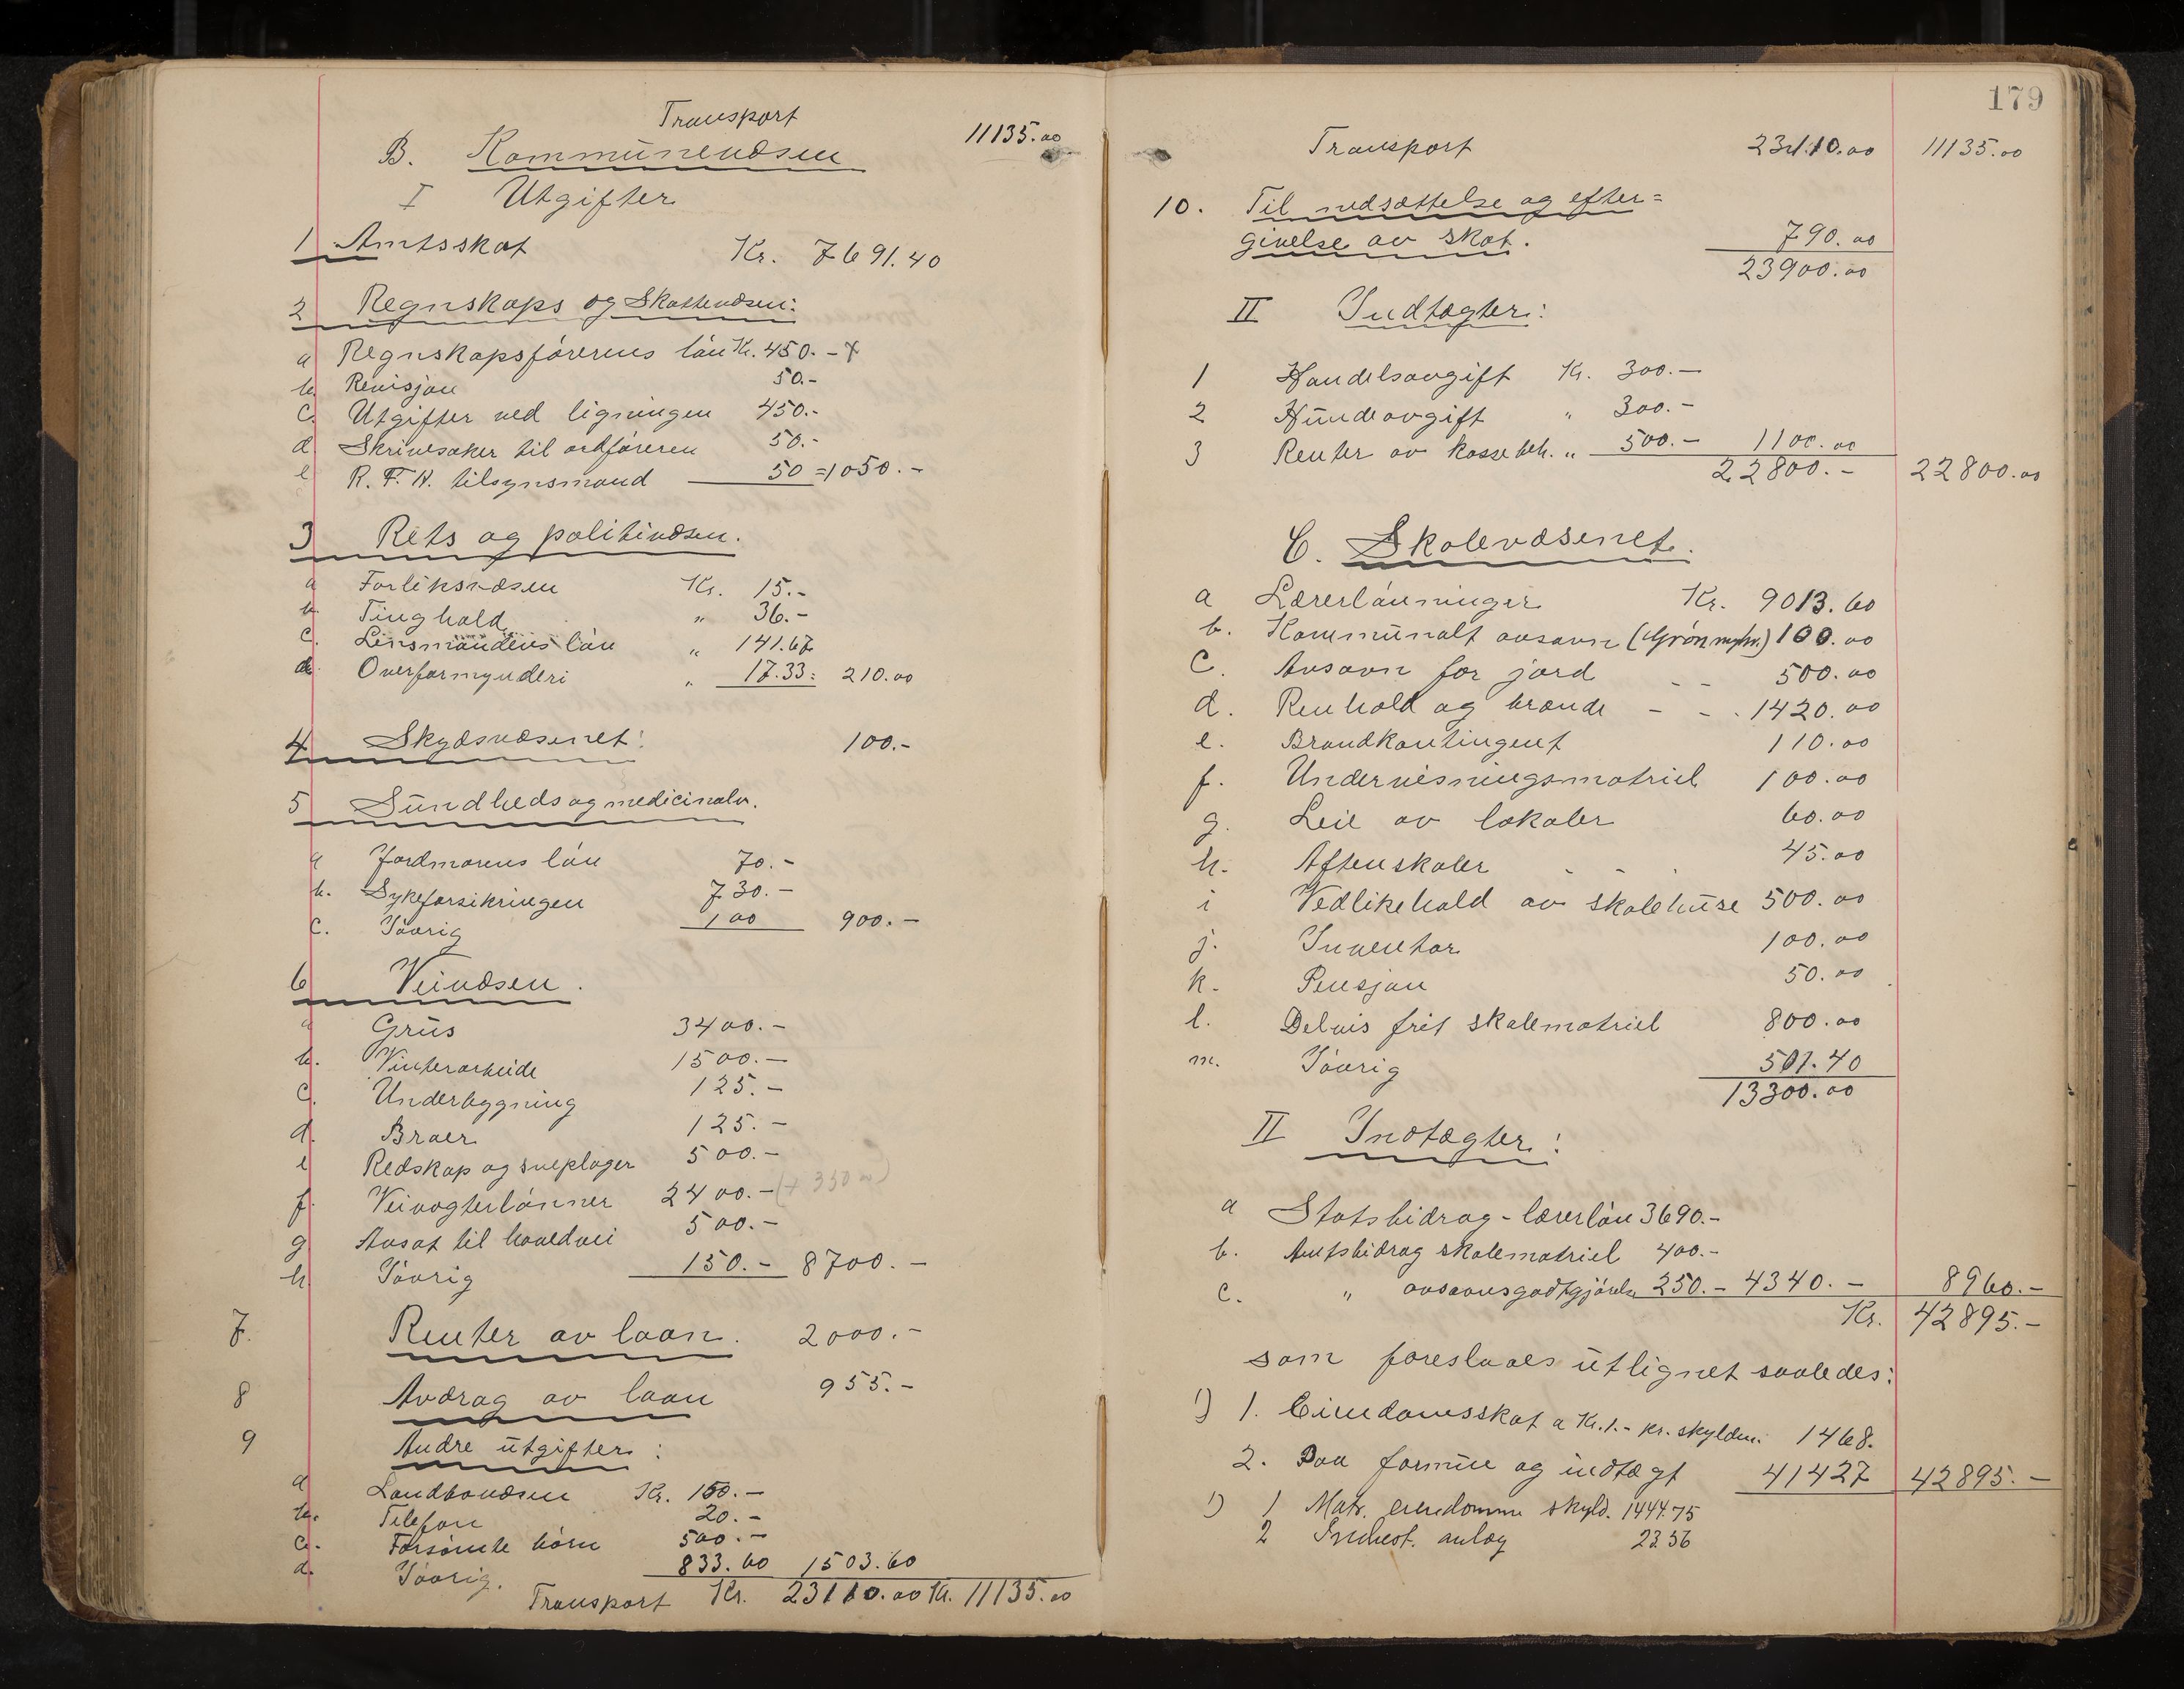 Transport
11135.00
B. Kommunevæsen
I Utgifter
1 Amtsskat Kr. 7691.40
2 Regnskaps og Skattevæsen:
a Regnskapsførerens løn Kr. 450.-
b Revisjon 50.-
c. Utgifter ved ligningen 450.-
d Skrivesaker til ordføreren 50.-
e R. F. N. tilsynsmand 50 = 1050.-
3 Rets og politivæsen.
a Forliksvæsen Kr. 15.-
b. Tinghold " 36.-
c. Lensmandens løn " 141.67
d. Overformynderi " 17.33: 210.00
4 Skydsvæsenet: 100.-
5 Sundheds og medicinalv.
a Jordmorens løn 70.-
b. Sykeforsikringen 730.-
c. Iøvrig 100 900.-
6 Veivæsen.
a Grus 3400.-
b. Vinterarbeide 1500.-
c. Underbygning 125.-
d. Broer 125.-
e Redskap og sneploger 500.-
f. Veivogterlønner 2400.- (+ 350 00)
g Ansat til hovedvei 500.-
h Iøvrig 150.- 8700.-
7. Renter av laan. 2000.-
8 Avdrag av laan 955.-
9 Andre utgifter:
a Landbovæsen Kr. 150.-
b. Telefon 20.-
c. Forsømte børn 500.-
d. Iøvrig. 833.60 1503.60
Transport Kr. 23110.00 Kr. 11135.00
179
Transport 23110.00 11135.00
10. Til nedsættelse og efter=
givelse av skat. 790.00
23900.00
II Indtægter:
1 Handelsavgift Kr. 300.-
2 Hundeavgift " 300.-
3 Renter av kassebeh. " 500.- 1100.00
22800.- 22800.00
C. Skolevæsenet.
a Lærerlønninger Kr. 9013.60
b. Kommunalt avsavn (Grønmyhr.) 100.00
c. Avsavn for jord - - 500.00
d. Renhold og brænde - - 1420.00
e. Brandkontingent 110.00
f. Undervisningsmatriel 100.00
g. Leie av lokaler 60.00
h. Aftenskoler - - 45.00
i Vedlikehold av skolehuse 500.00
j. Inventar 100.00
k. Pensjon 50.00
l. Delvis frit skolematriel 800.00
m. Iøvrig 501.40
13300.00
II Indtægter:
a Statsbidrag - lærerløn 3690.-
b. Amtsbidrag skolematriel 400.-
c. " avsavnsgodtgjørelse 250.- 4340.- 8960.-
Kr. 42895.-
som foreslaaes utlignet saaledes:
1) 1. Eiendomsskat a Kr. 1.- pr. skyldm. 1468.
2. Paa formue og indtægt 41427 42895.-
1) 1 Matr. eiendomme skyld. 1444.75
2 Indust. anlæg 23.56